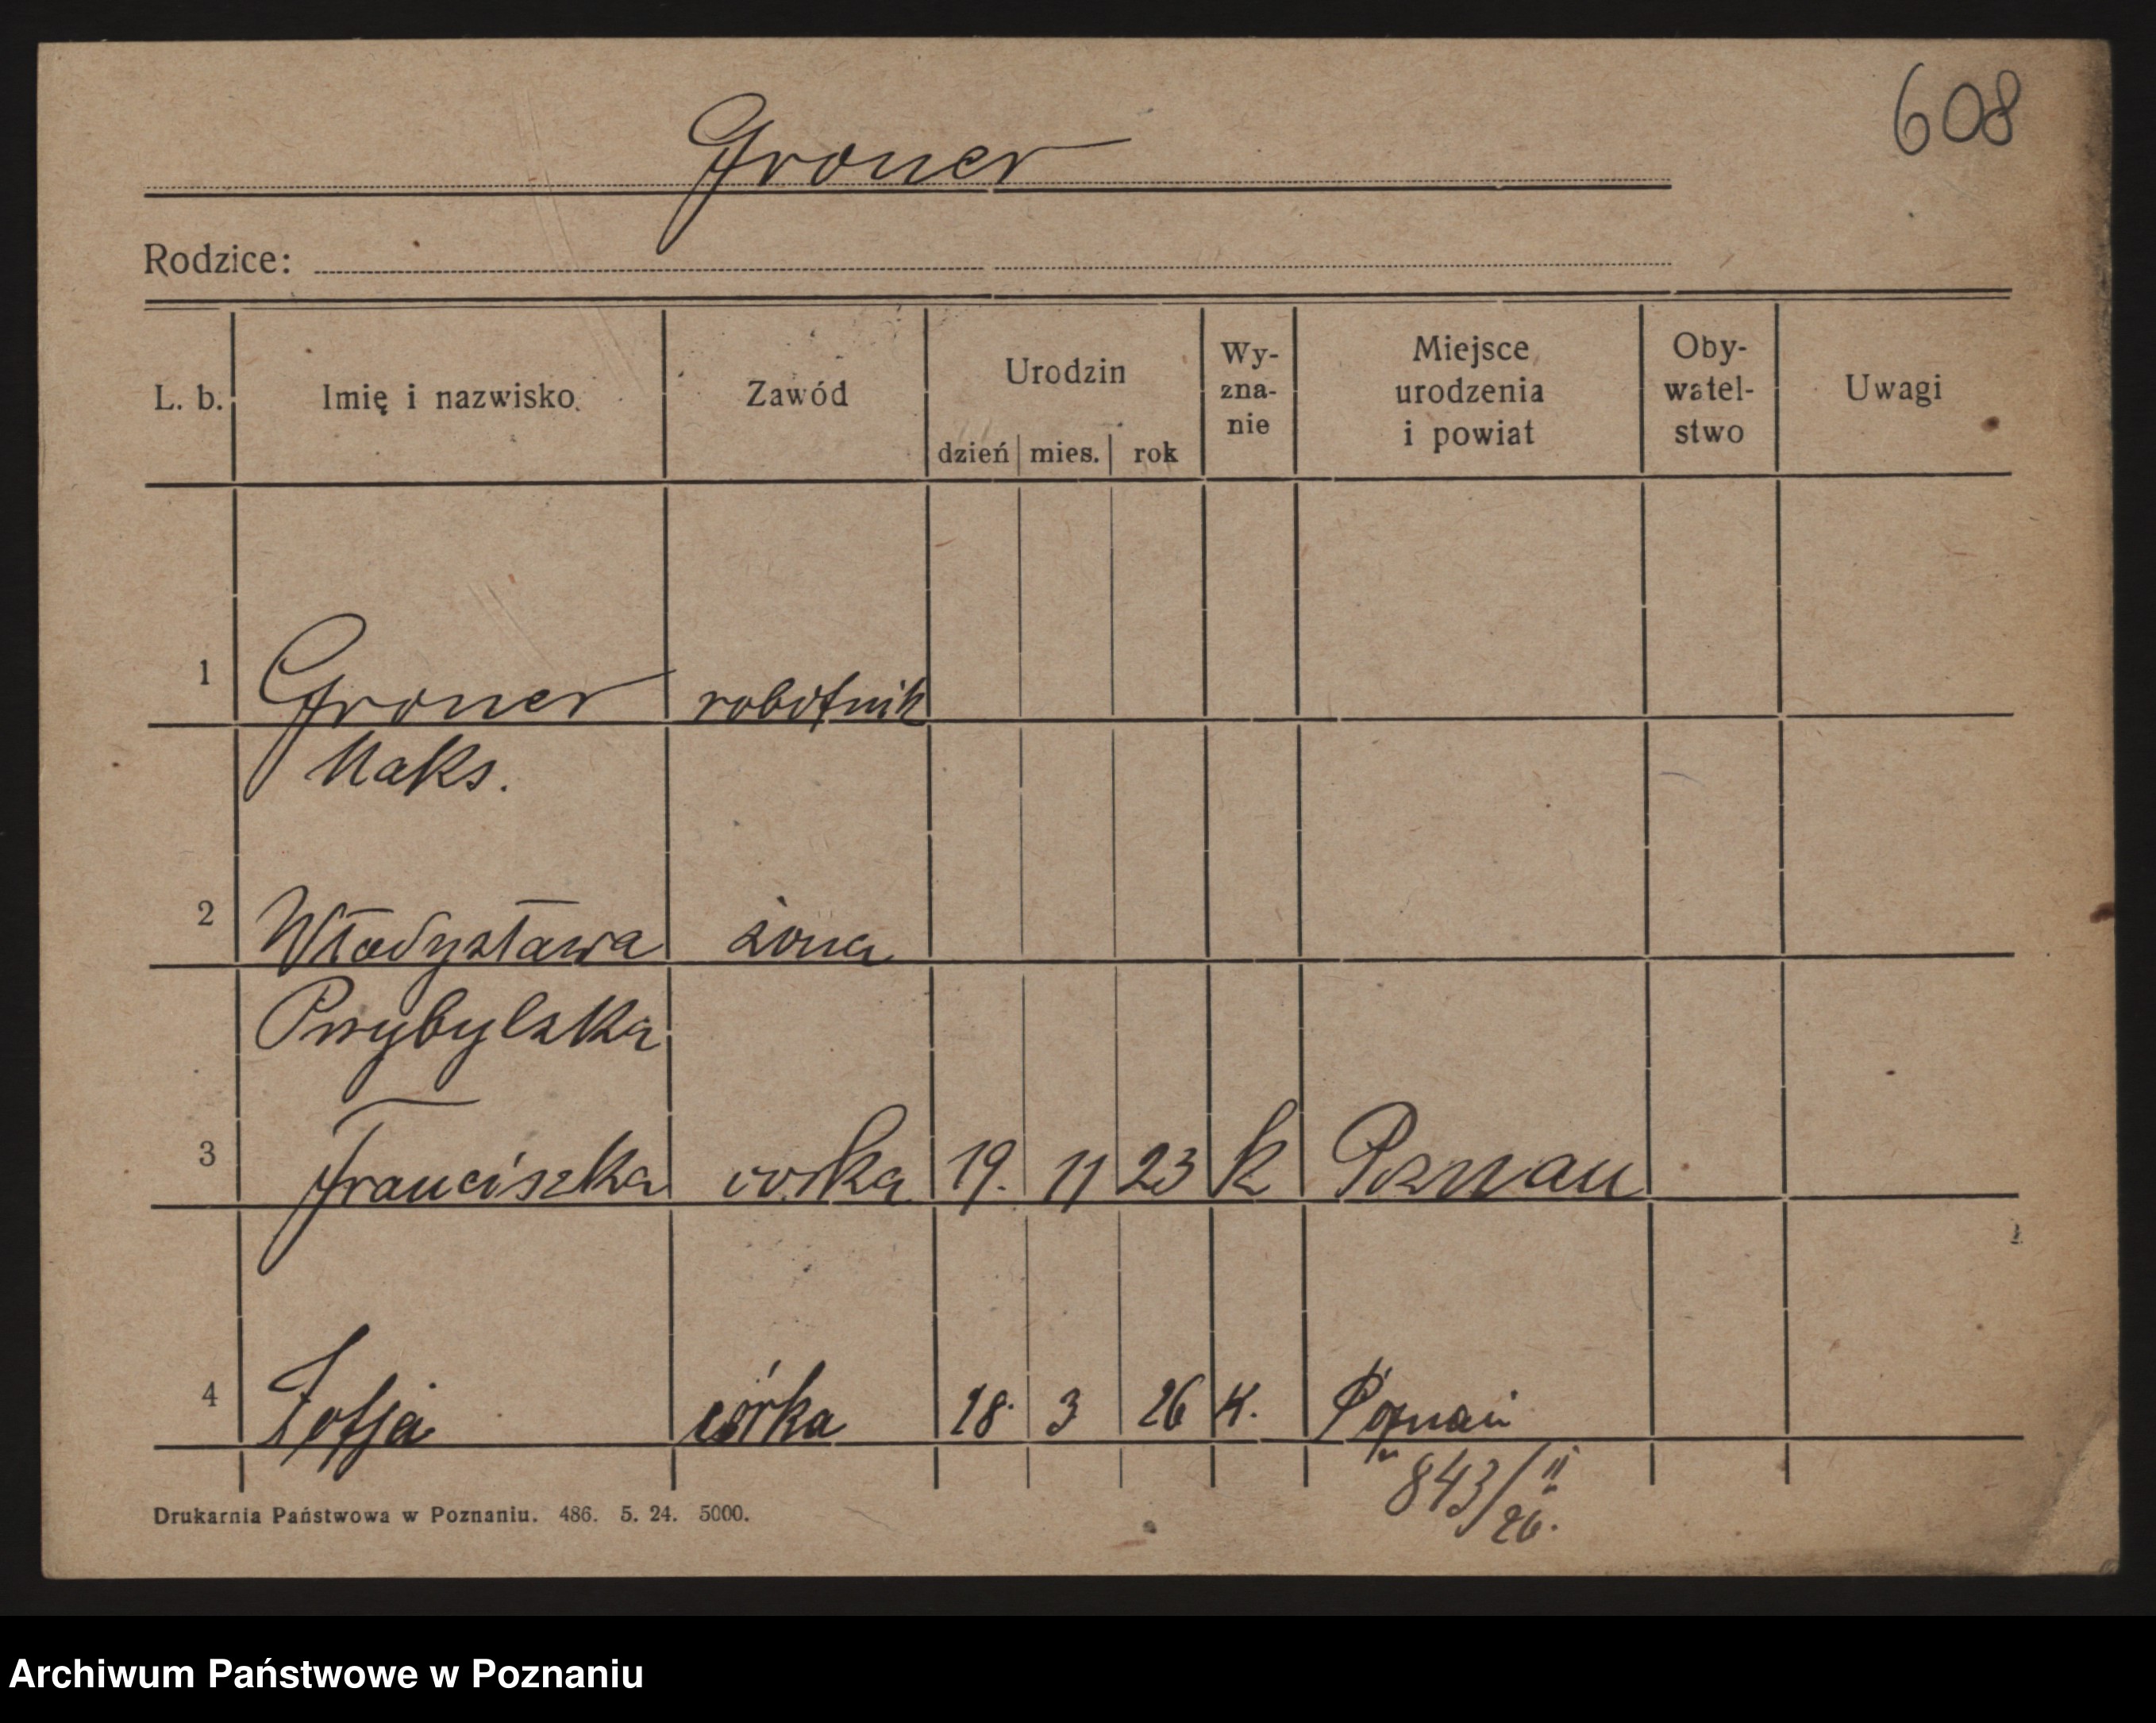 608
Groner
Rodzice:
L. b. Imię i nazwisko Zawód Urodzin dzień mies. rok Wy-zna-nie Miejsce urodzenia i powiat Oby-watel-stwo Uwagi
1 Groner robotnik
Maks.
2 Władysława żona
Przybylska
3 Franciszka córka 19. 11 23 k Poznan
4 Zofja córka 18. 3 26 k. Poznań
843/II 26.
Drukarnia Państwowa w Poznaniu. 486. 5. 24. 5000.
Archiwum Państwowe w Poznaniu